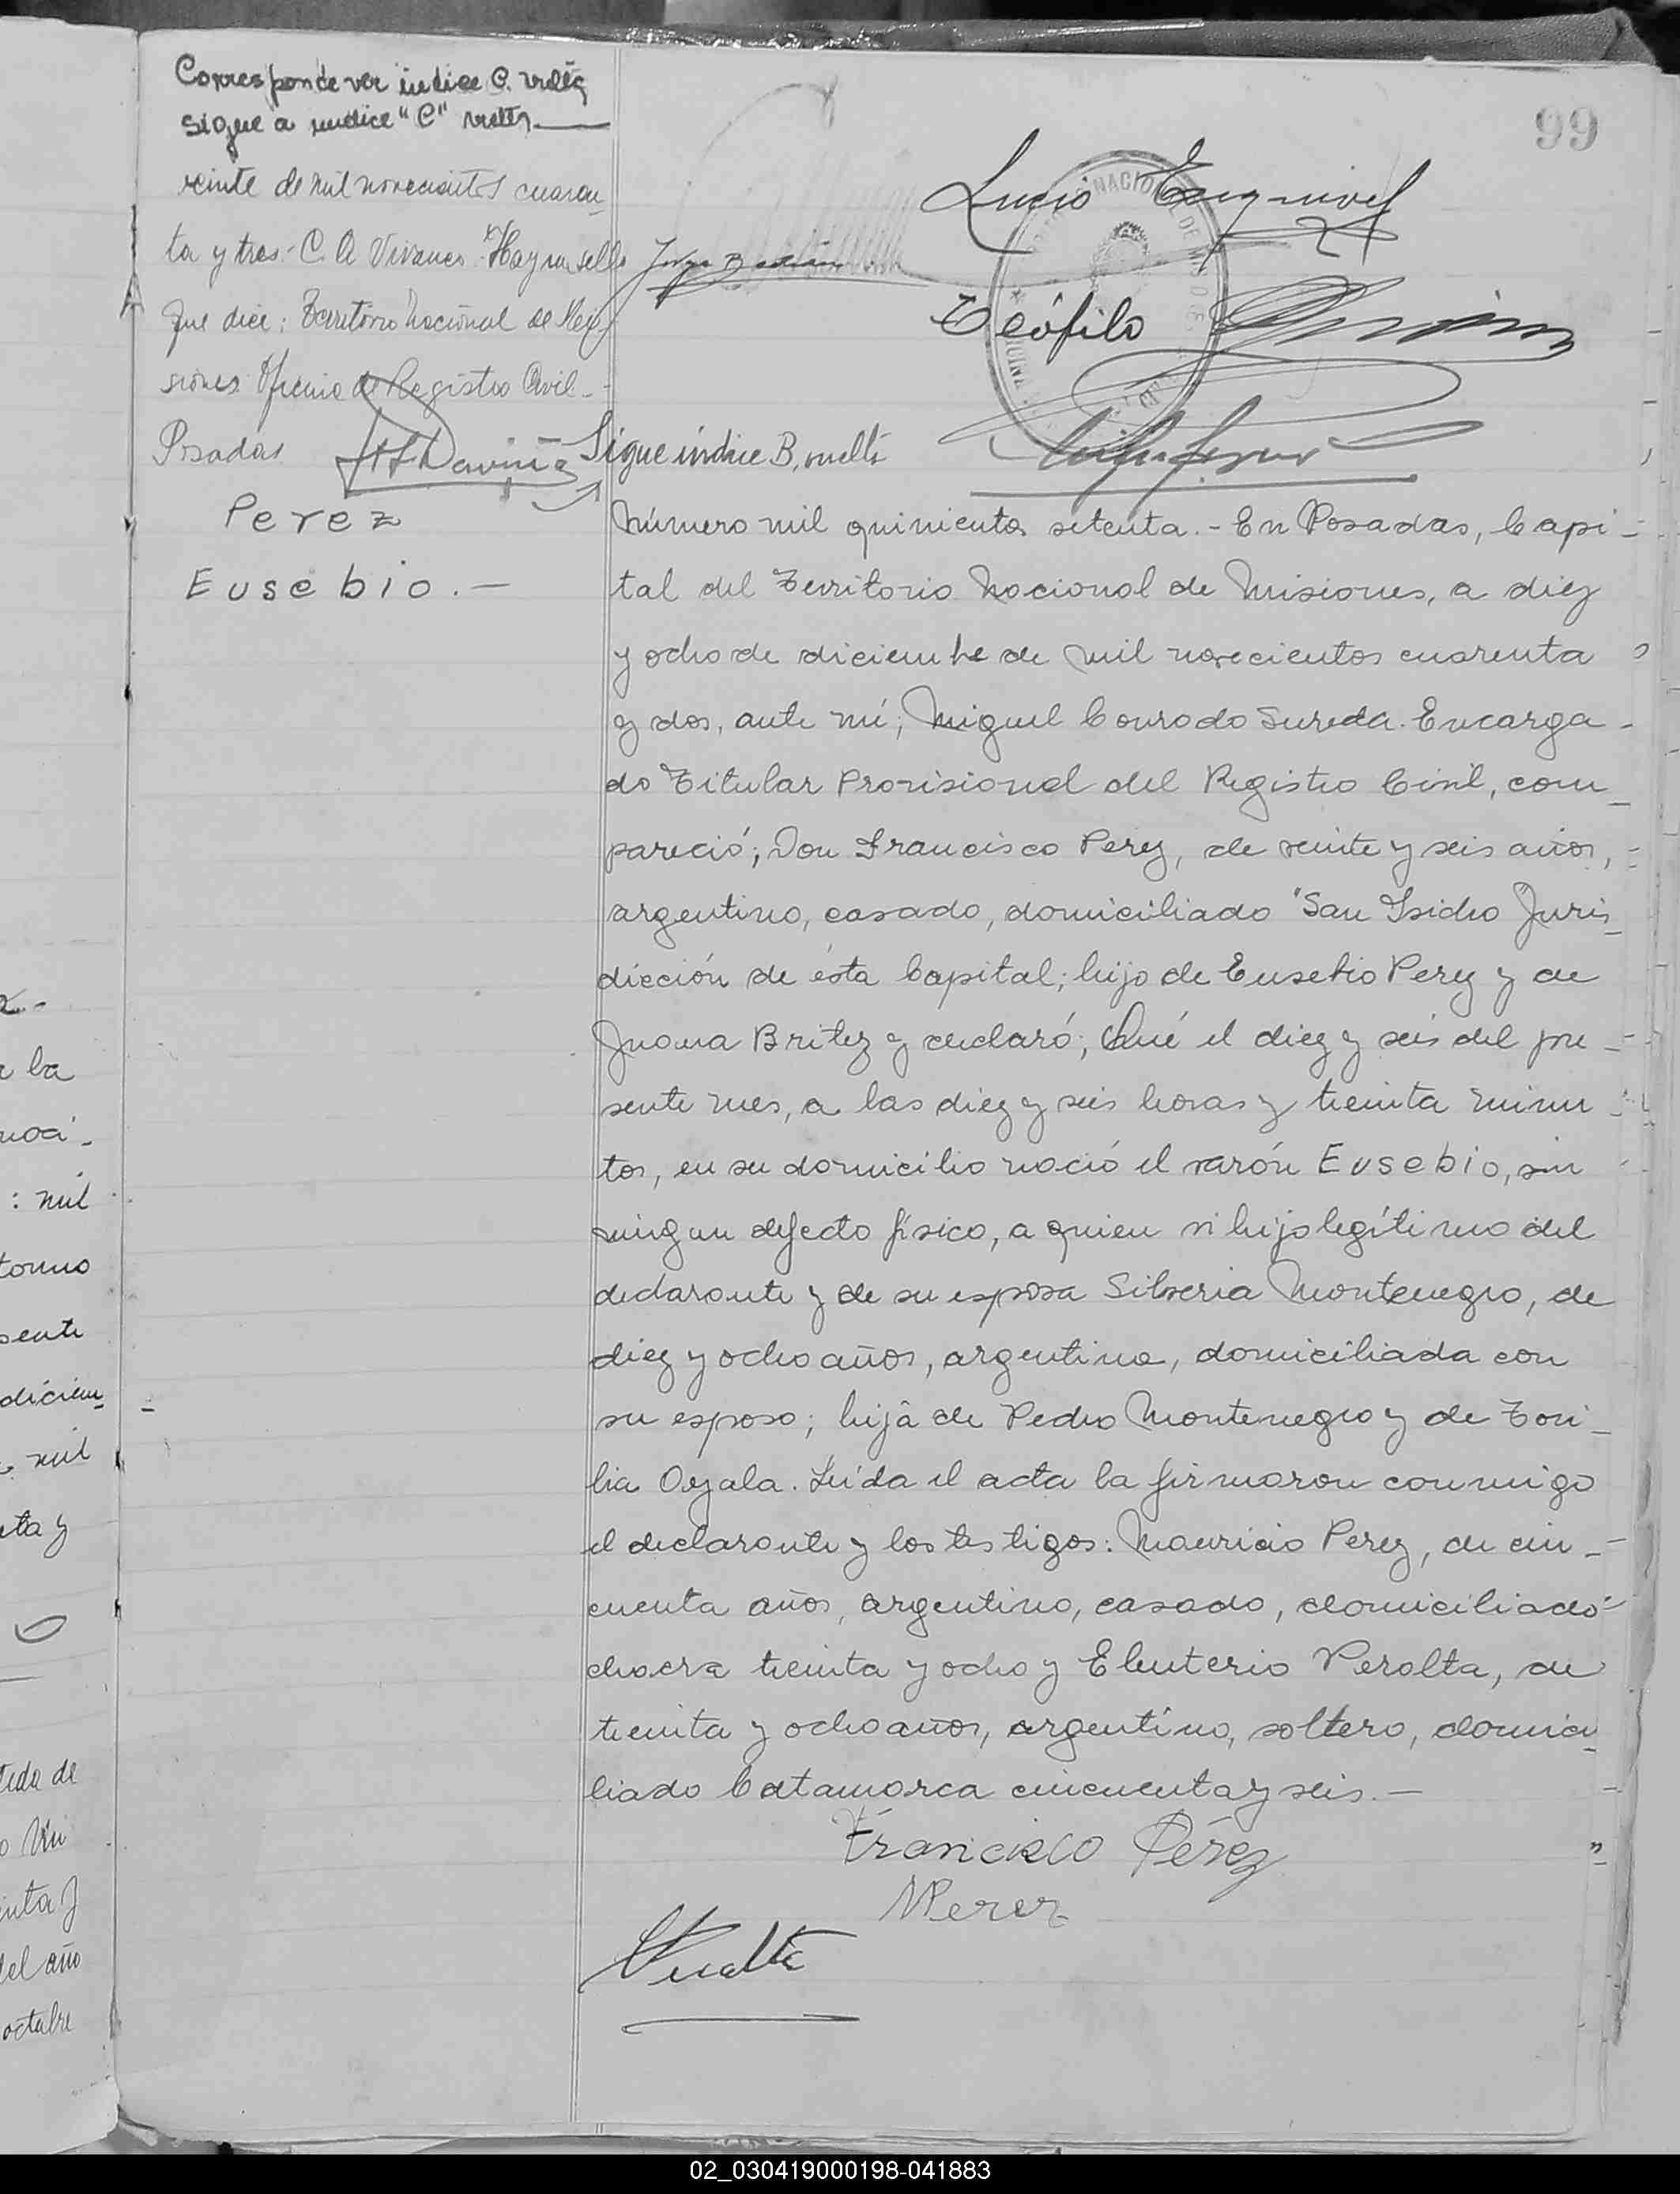 Corresponde ver indice C. vuelta
sigue a indice "C" vuelta
99
veinte de mil novecientos cuaren_
ta y tres.- C. A. Vivanco. Hay un sello
que dice: Territorio Nacional de Mi
siones Oficina de Registro Civil.-
Posadas
Lucio Esquivel
Teófilo
Sigue indice B, vuelta
Perez
Eusebio.-
Número mil quinientos setenta.- En Posadas, Capi-
tal del Territorio Nacional de Misiones, a diez
y ocho de diciembre de mil novecientos cuarenta
y dos, ante mí; Miguel Conrado Sureda. Encarga-
do Titular Provisional del Registro Civil, com_
pareció; Don Francisco Perez, de veinte y seis años,
argentino, casado, domiciliado "San Isidro Juris_
dicción de ésta Capital; hijo de Eusebio Perez y de
Juana Britez y declaró; Qué el diez y seis del pre-
sente mes, a las diez y seis horas y treinta minu-
tos, en su domicilio nació el varón Eusebio, sin
ningun defecto físico, a quien vi hijo legítimo del
declarante y de su esposa Silveria Montenegro, de
diez y ocho años, argentina, domiciliada con
su esposo; hija de Pedro Montenegro y de Tori_
bia Oyala. Leída el acta la firmaron conmigo
el declarante y los testigos: Mauricio Perez, de cin-
cuenta años, argentino, casado, domiciliado
chacra treinta y ocho y Eleuterio Peralta, de
treinta y ocho años, argentino, soltero, domici_
liado Catamarca cincuenta y seis.-
Francisco Pérez
MPerez
Vuelta
la
noci-
: mil
torno
sente
diciem_
mil
nta y
teda de
inta y
del año
octubre
02_030419000198-041883